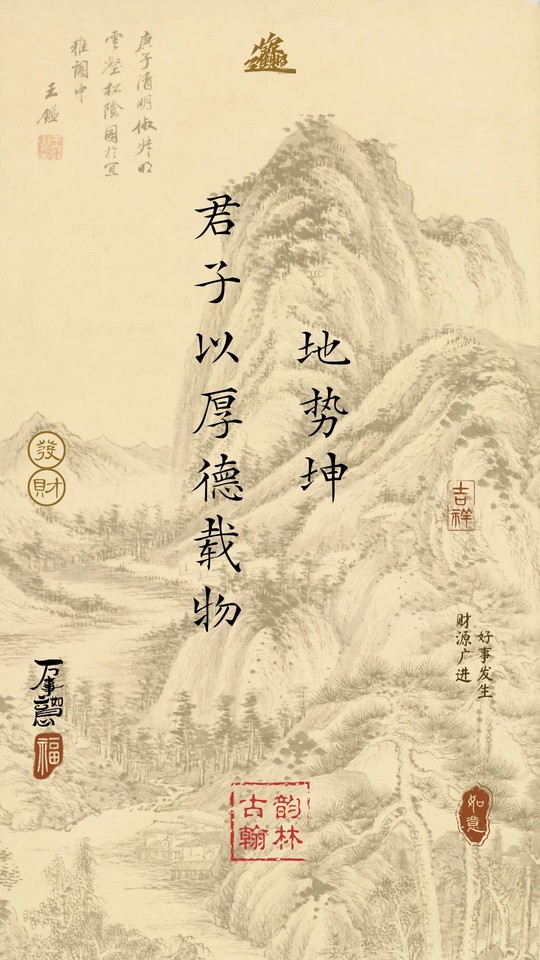 庚子清明倣叔明
雲壑松陰圖於
中
王鑑
地势坤
君子以厚德载物
發財
吉祥
好事发生
财源广进
万事如意
福
韵林
古翰
如意